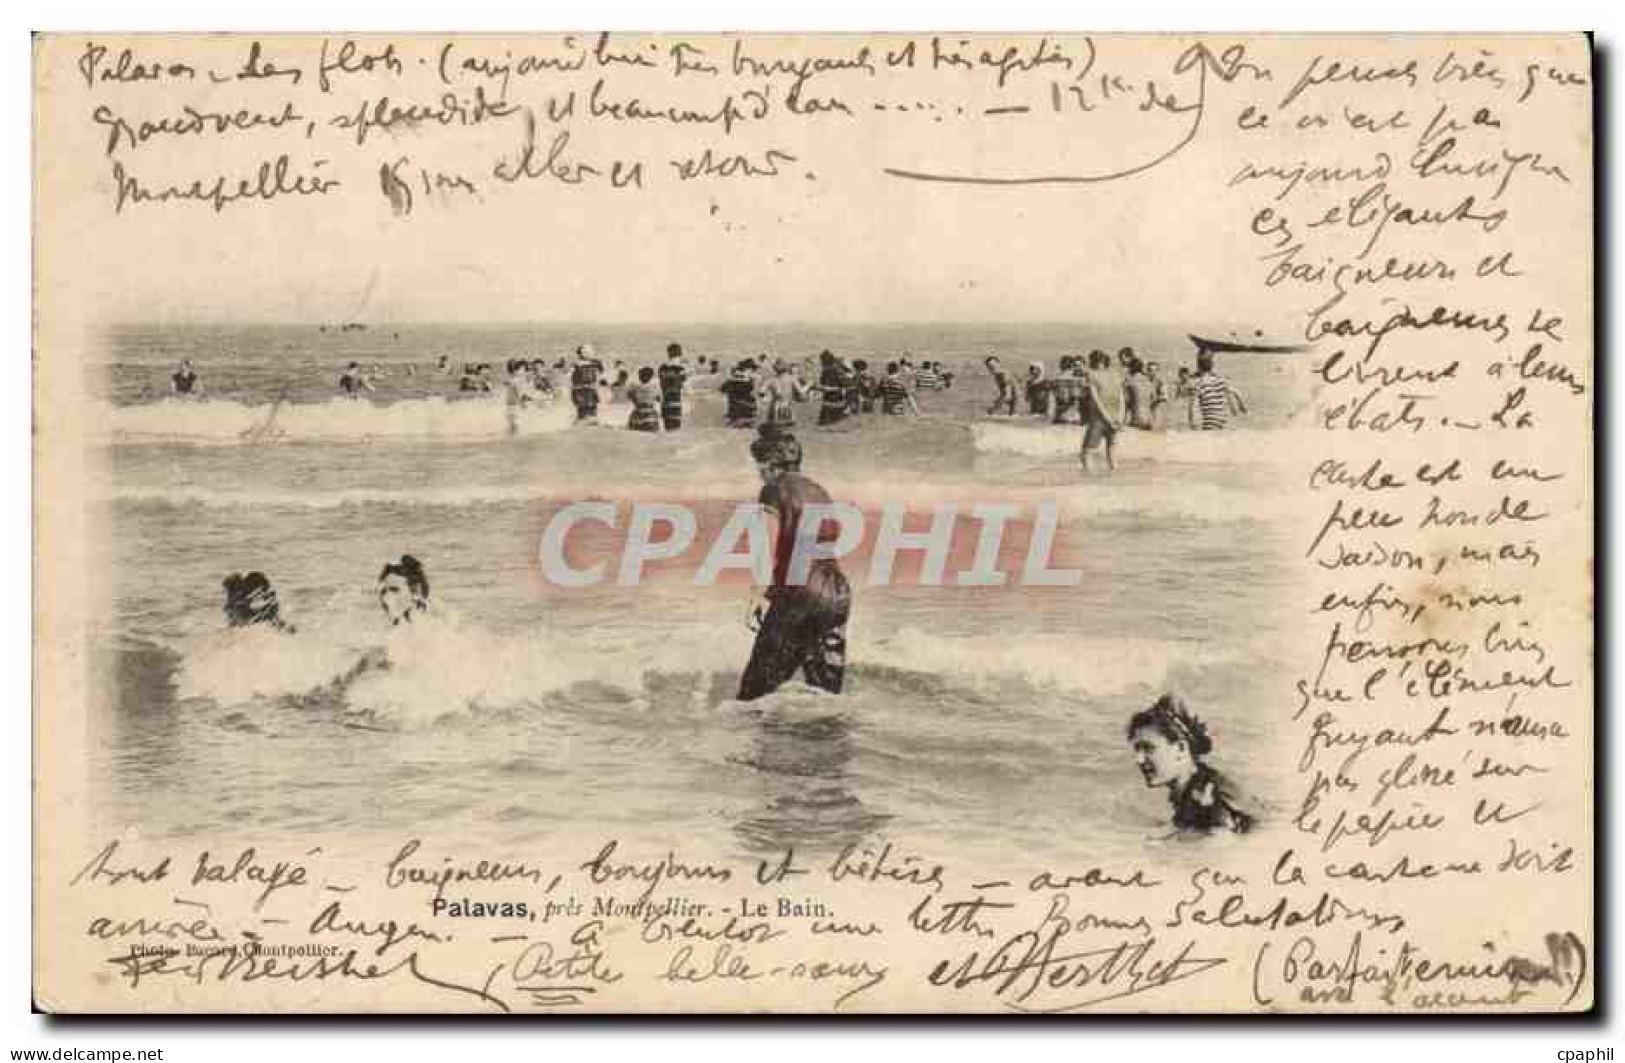 Palavas - Les flots. (aujourd'hui très bruyants et très agités)
Grand vent, splendide, et beaucoup d'eau ..... - 12 k. de
Montpellier aller et retour.
On pense bien que
ce n'est pas
aujourd'hui que
ces élégants
baigneurs et
baigneuses se
livrent à leurs
ébats. - La
carte est un
peu hors de
saison, mais
enfin, nous
pensons bien
que l'élément
fuyant n'aura
pas glissé sur
le papier et
tout balayé - baigneurs, et bêtises - avant que la carte ne soit
arrivée - - à bientôt une lettre Bonnes Salutations
Palavas, près Montpellier. - Le Bain.
Photo Montpellier.
Petite belle-sœur et (Parfait
avec l'accent
CPAPHIL
www.delcampe.net
cpaphil